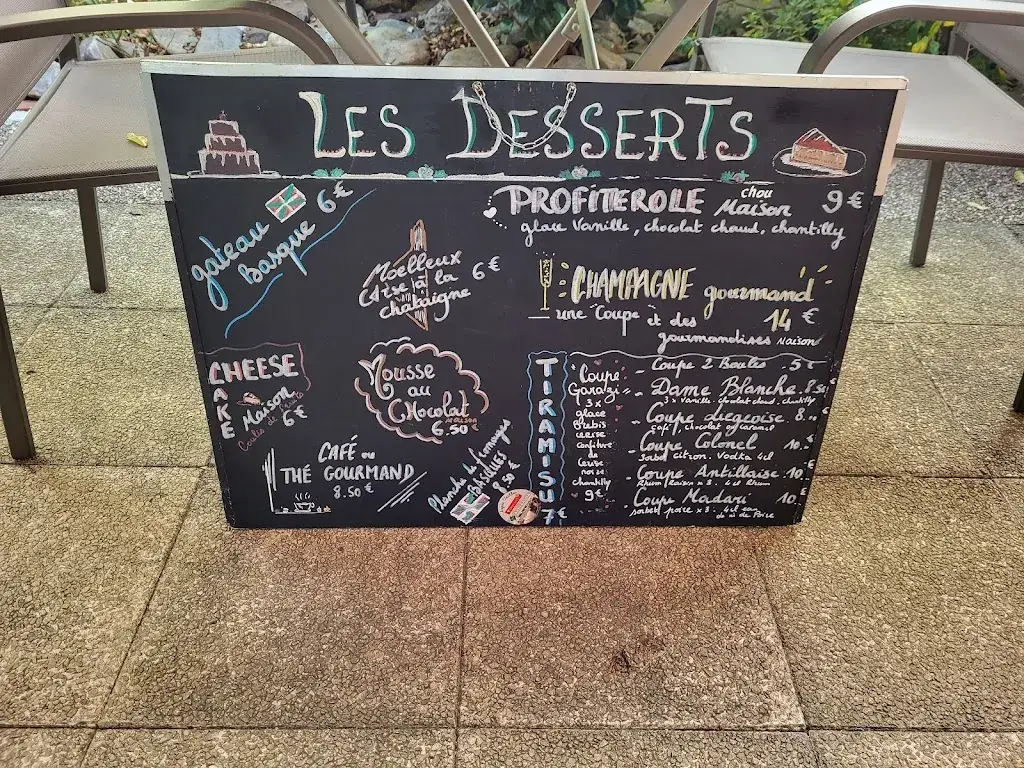 LES DESSERTS
gateau
Basque
6€
PROFITEROLE chou Maison 9€
glace Vanille, chocolat chaud, chantilly
Moelleux
à la
chataigne
6€
CHAMPAGNE gourmand
une Coupe et des 14€
gourmandises Maison
CHEESE
CAKE
Maison
6€
Mousse
au
CHocolat
MAISON
6.50€
CAFÉ ou
THÉ GOURMAND
8.50€
Planche de Fromages
BASQUES
8.50€
TIRAMISU
7€
Coupe
Garazi
3x
glace
Brebis
cerise
confiture
de
cerise
noire
chantilly
9€
- Coupe 2 Boules . 5€
- Dame Blanche . 8.50
3 x Vanille . chocolat chaud . chantilly
- Coupe Liegeoise 8.
café / chocolat ou caramel
- Coupe Colonel 10.
sorbet citron . Vodka 4cl
- Coupe Antillaise . 10.
Rhum/Raisin x 3 . 4cl Rhum
- Coupe Madari 10.
sorbet poire x 3 . 4cl eau
de vie de Poire